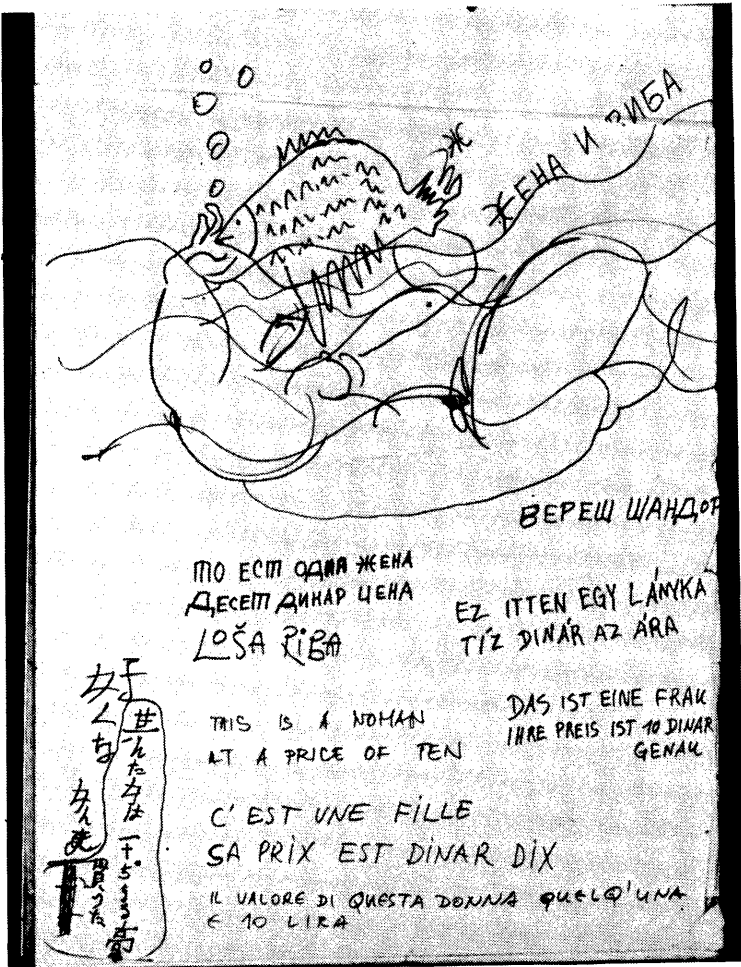 Ж
ЖЕНА И РИБА
ВЕРЕШ ШАНДОР
ТО ЕСТ ОДНА ЖЕНА
ДЕСЕТ ДИНАР ЦЕНА
LOŠA RIBA
EZ ITTEN EGY LÁNYKA
TÍZ DINÁR AZ ÁRA
THIS IS A WOMAN
AT A PRICE OF TEN
DAS IST EINE FRAU
IHRE PREIS IST 10 DINAR
GENAU
C'EST UNE FILLE
SA PRIX EST DINAR DIX
IL VALORE DI QUESTA DONNA QUELQ'UNA
E 10 LIRA